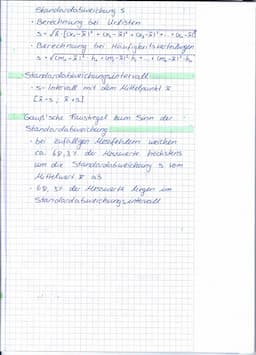 Standardabweichung s
• Berechnung bei Urlisten
s = √1/n · [(x₁ - x̄)² + (x₂ - x̄)² + (x₃ - x̄)² + ... + (xₙ - x̄)²]
• Berechnung bei Häufigkeitsverteilungen
s = √(m₁ - x̄)² · h₁ + (m₂ - x̄)² · h₂ + ... + (mₖ - x̄)² · hₖ
Standardabweichungsintervall
• s-Intervall mit dem Mittelpunkt x̄
[x̄ - s ; x̄ + s]
Gauß'sche Faustregel zum Sinn der
Standardabweichung
• bei zufälligen Messfehlern weichen
ca. 68,3% der Messwerte höchstens
um die Standardabweichung s vom
Mittelwert x̄ ab
• 68,3% der Messwerte liegen im
Standardabweichungsintervall